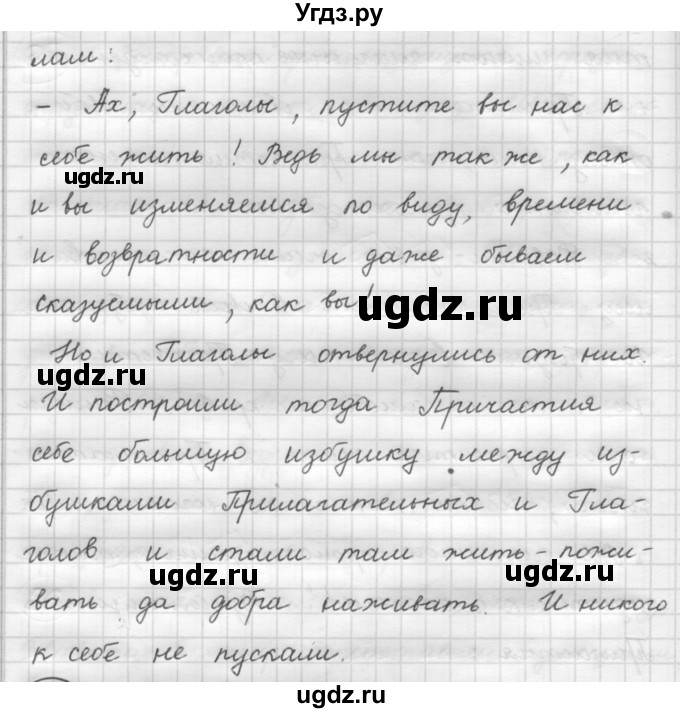 Угдз.ру
лам:
- Ах, Глаголы, пустите вы нас к
себе жить! Ведь мы также, как
ugdz.ru
и вы изменяемся по виду, времени
и возвратности и даже бываем
сказуемыми, как вы!
ugdz.ru
Но и Глаголы отвернулись от них.
ugdz.ru
И построили тогда Причастия
себе большую избушку между из-
бушками Прилагательных и Гла-
голов и стали там жить-пожи-
ugdz.ru
ugdz.ru
вать да добра наживать. И никого
к себе не пускали.
ugdz.ru